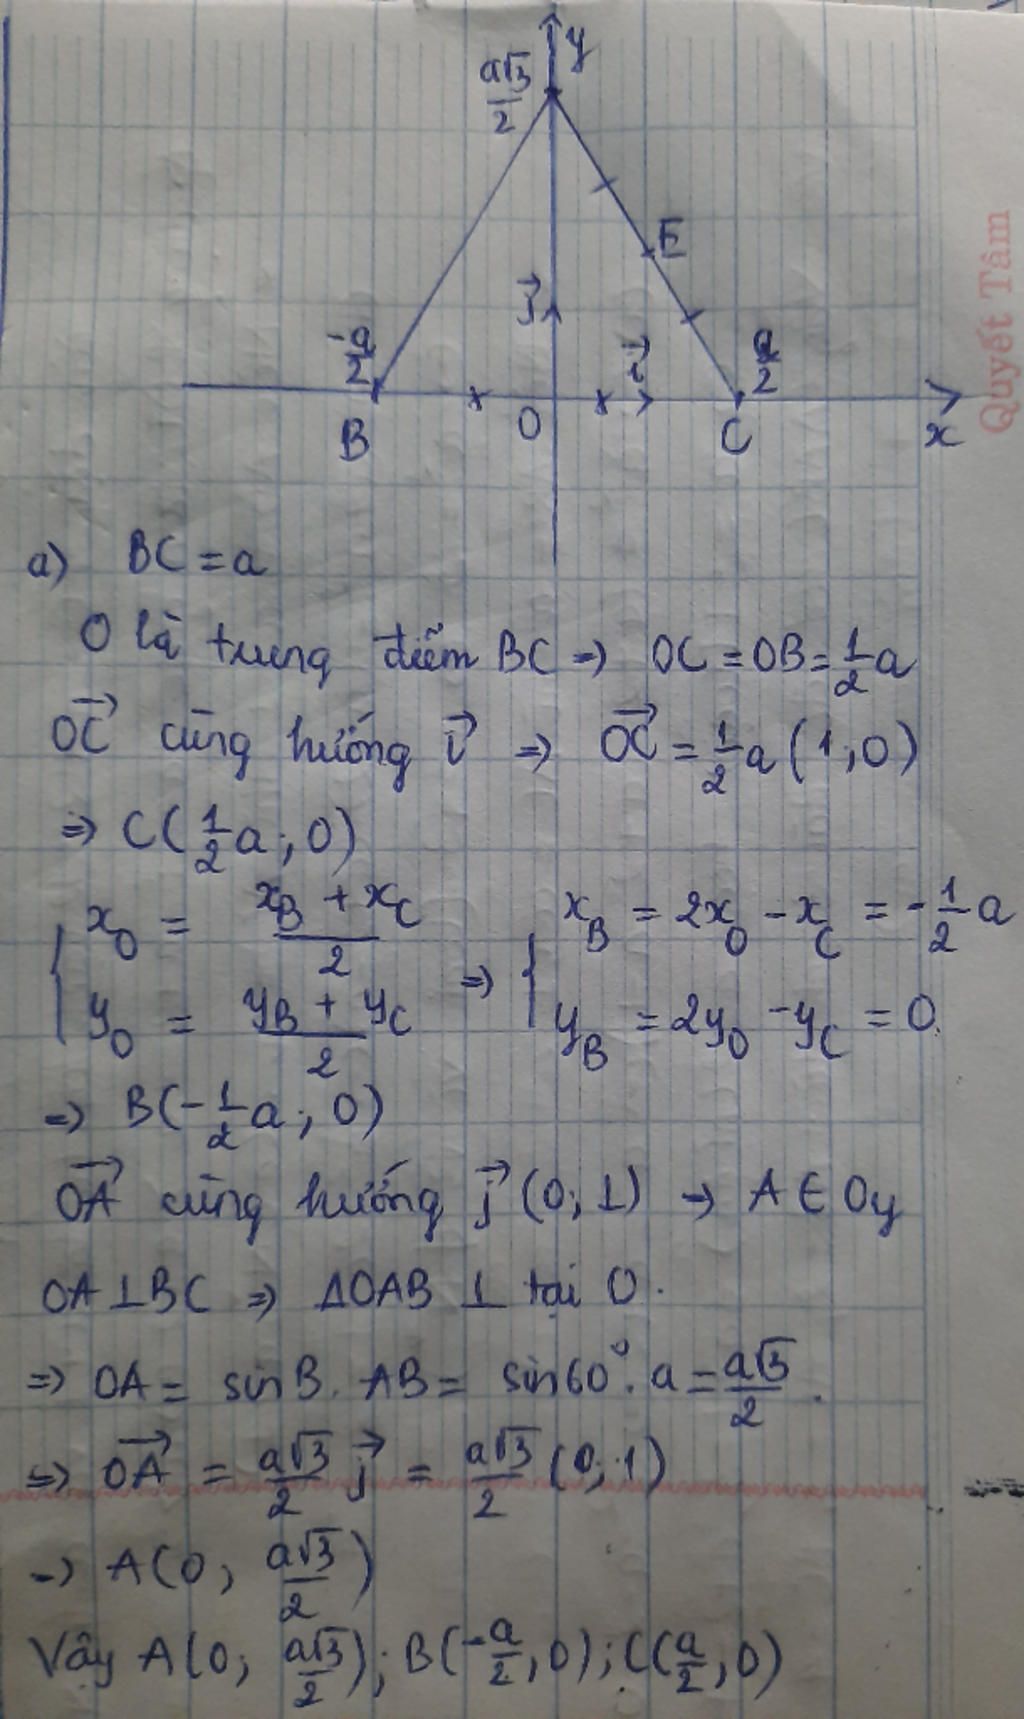 y
a√3/2
E
j⃗
-a/2
i⃗
a/2
B
O
C
x
Quyết Tâm
a) BC = a
O là trung điểm BC => OC = OB = 1/2 a
OC⃗ cùng hướng i⃗ => OC⃗ = 1/2 a (1; 0)
=> C(1/2 a; 0)
{ x_O = (x_B + x_C)/2 => { x_B = 2x_O - x_C = -1/2 a
y_O = (y_B + y_C)/2 y_B = 2y_O - y_C = 0.
=> B(-1/2 a; 0)
OA⃗ cùng hướng j⃗ (0; 1) → A ∈ Oy
OA ⊥ BC => ΔOAB ⊥ tại O.
=> OA = sin B. AB = sin 60°. a = a√3/2.
=> OA⃗ = a√3/2 j⃗ = a√3/2 (0; 1)
→ A(0; a√3/2)
Vậy A(0; a√3/2); B(-a/2, 0); C(a/2, 0)